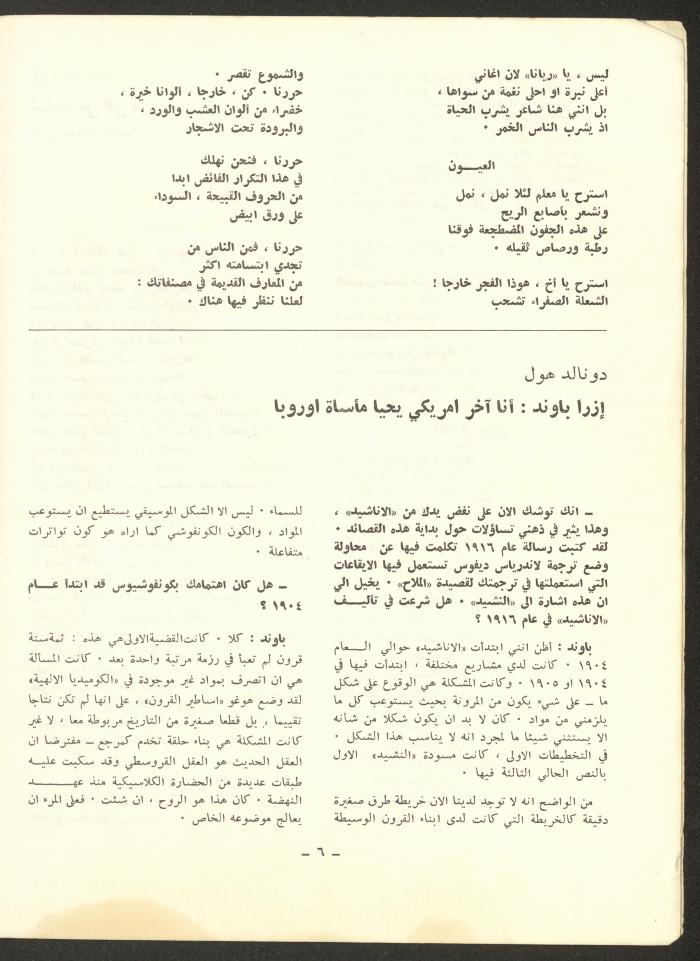 ليس ، يا «ريانا» لان اغاني
أعلى نبرة او احلى نغمة من سواها ،
بل انني هنا شاعر يشرب الحياة
اذ يشرب الناس الخمر ٠
العيـــون
استرح يا معلم لئلا نمل ، نمل
ونشعر بأصابع الريح
على هذه الجفون المضطجعة فوقنا
رطبة ورصاص ثقيله ٠
استرح يا أخ ، هوذا الفجر خارجا !
الشعلة الصفراء تشحب
والشموع تقصر ٠
حررنا ٠ كن ، خارجا ، ألوانا خيرة ،
خضراء من ألوان العشب والورد ،
والبرودة تحت الاشجار
حررنا ، فنحن نهلك
في هذا التكرار الفائض ابدا
من الحروف القبيحة ، السوداء
على ورق ابيض
حررنا ، فمن الناس من
تجدي ابتسامته اكثر
من المعارف القديمة في مصنفاتك :
لعلنا ننظر فيها هناك ٠
دونالد هول
إزرا باوند : أنا آخر امريكي يحيا مأساة اوروبا
ــ انك توشك الان على نفض يدك من «الاناشيد» ،
وهذا يثير في ذهني تساؤلات حول بداية هذه القصائد ٠
لقد كتبت رسالة عام ١٩١٦ تكلمت فيها عن محاولة
وضع ترجمة لاندرياس ديفوس تستعمل فيها الايقاعات
التي استعملتها في ترجمتك لقصيدة «الملاح» ٠ يخيل الي
ان هذه اشارة الى «النشيد» ٠ هل شرعت في تأليـــف
«الاناشيد» في عام ١٩١٦ ؟
باوند : أظن انني ابتدأت «الاناشيد» حوالي الـــعام
١٩٠٤ ٠ كانت لدي مشاريع مختلفة ، ابتدأت فيها في
١٩٠٤ او ١٩٠٥ ٠ وكانت المشكلة هي الوقوع على شكل
ما ــ على شيء يكون من المرونة بحيث يستوعب كل ما
يلزمني من مواد ٠ كان لا بد ان يكون شكلا من شأنه
الا يستثني شيئا ما لمجرد انه لا يناسب هذا الشكل ٠
في التخطيطات الاولى ، كانت مسودة «النشيد» الاول
بالنص الحالي الثالثة فيها ٠
من الواضح انه لا توجد لدينا الان خريطة طرق صغيرة
دقيقة كالخريطة التي كانت لدى ابناء القرون الوسيطة
للسماء ٠ ليس الا الشكل الموسيقي يستطيع ان يستوعب
المواد ، والكون الكونفوشي كما اراه هو كون تواترات
متفاعلة ٠
ــ هل كان اهتمامك بكونفوشيوس قد ابتدأ عـــام
١٩٠٤ ؟
باوند : كلا ٠ كانت القضية الاولى هي هذه : ثمة ستة
قرون لم تعبأ في رزمة مرتبة واحدة بعد ٠ كانت المسألة
هي ان اتصرف بمواد غير موجودة في «الكوميديا الالهية»
لقد وضع هوغو «اساطير القرون» ، على انها لم تكن نتاجا
تقييما ، بل قطعا صغيرة من التاريخ مربوطة معا ، لا غير
كانت المشكلة هي بناء حلقة تخدم كمرجع ــ مفترضا ان
العقل الحديث هو العقل القروسطي وقد سكبت عليـــه
طبقات عديدة من الحضارة الكلاسيكية منذ عهـــــد
النهضة ٠ كان هذا هو الروح ، ان شئت ٠ فعلى المرء ان
يعالج موضوعه الخاص ٠
ــ ٦ ــ